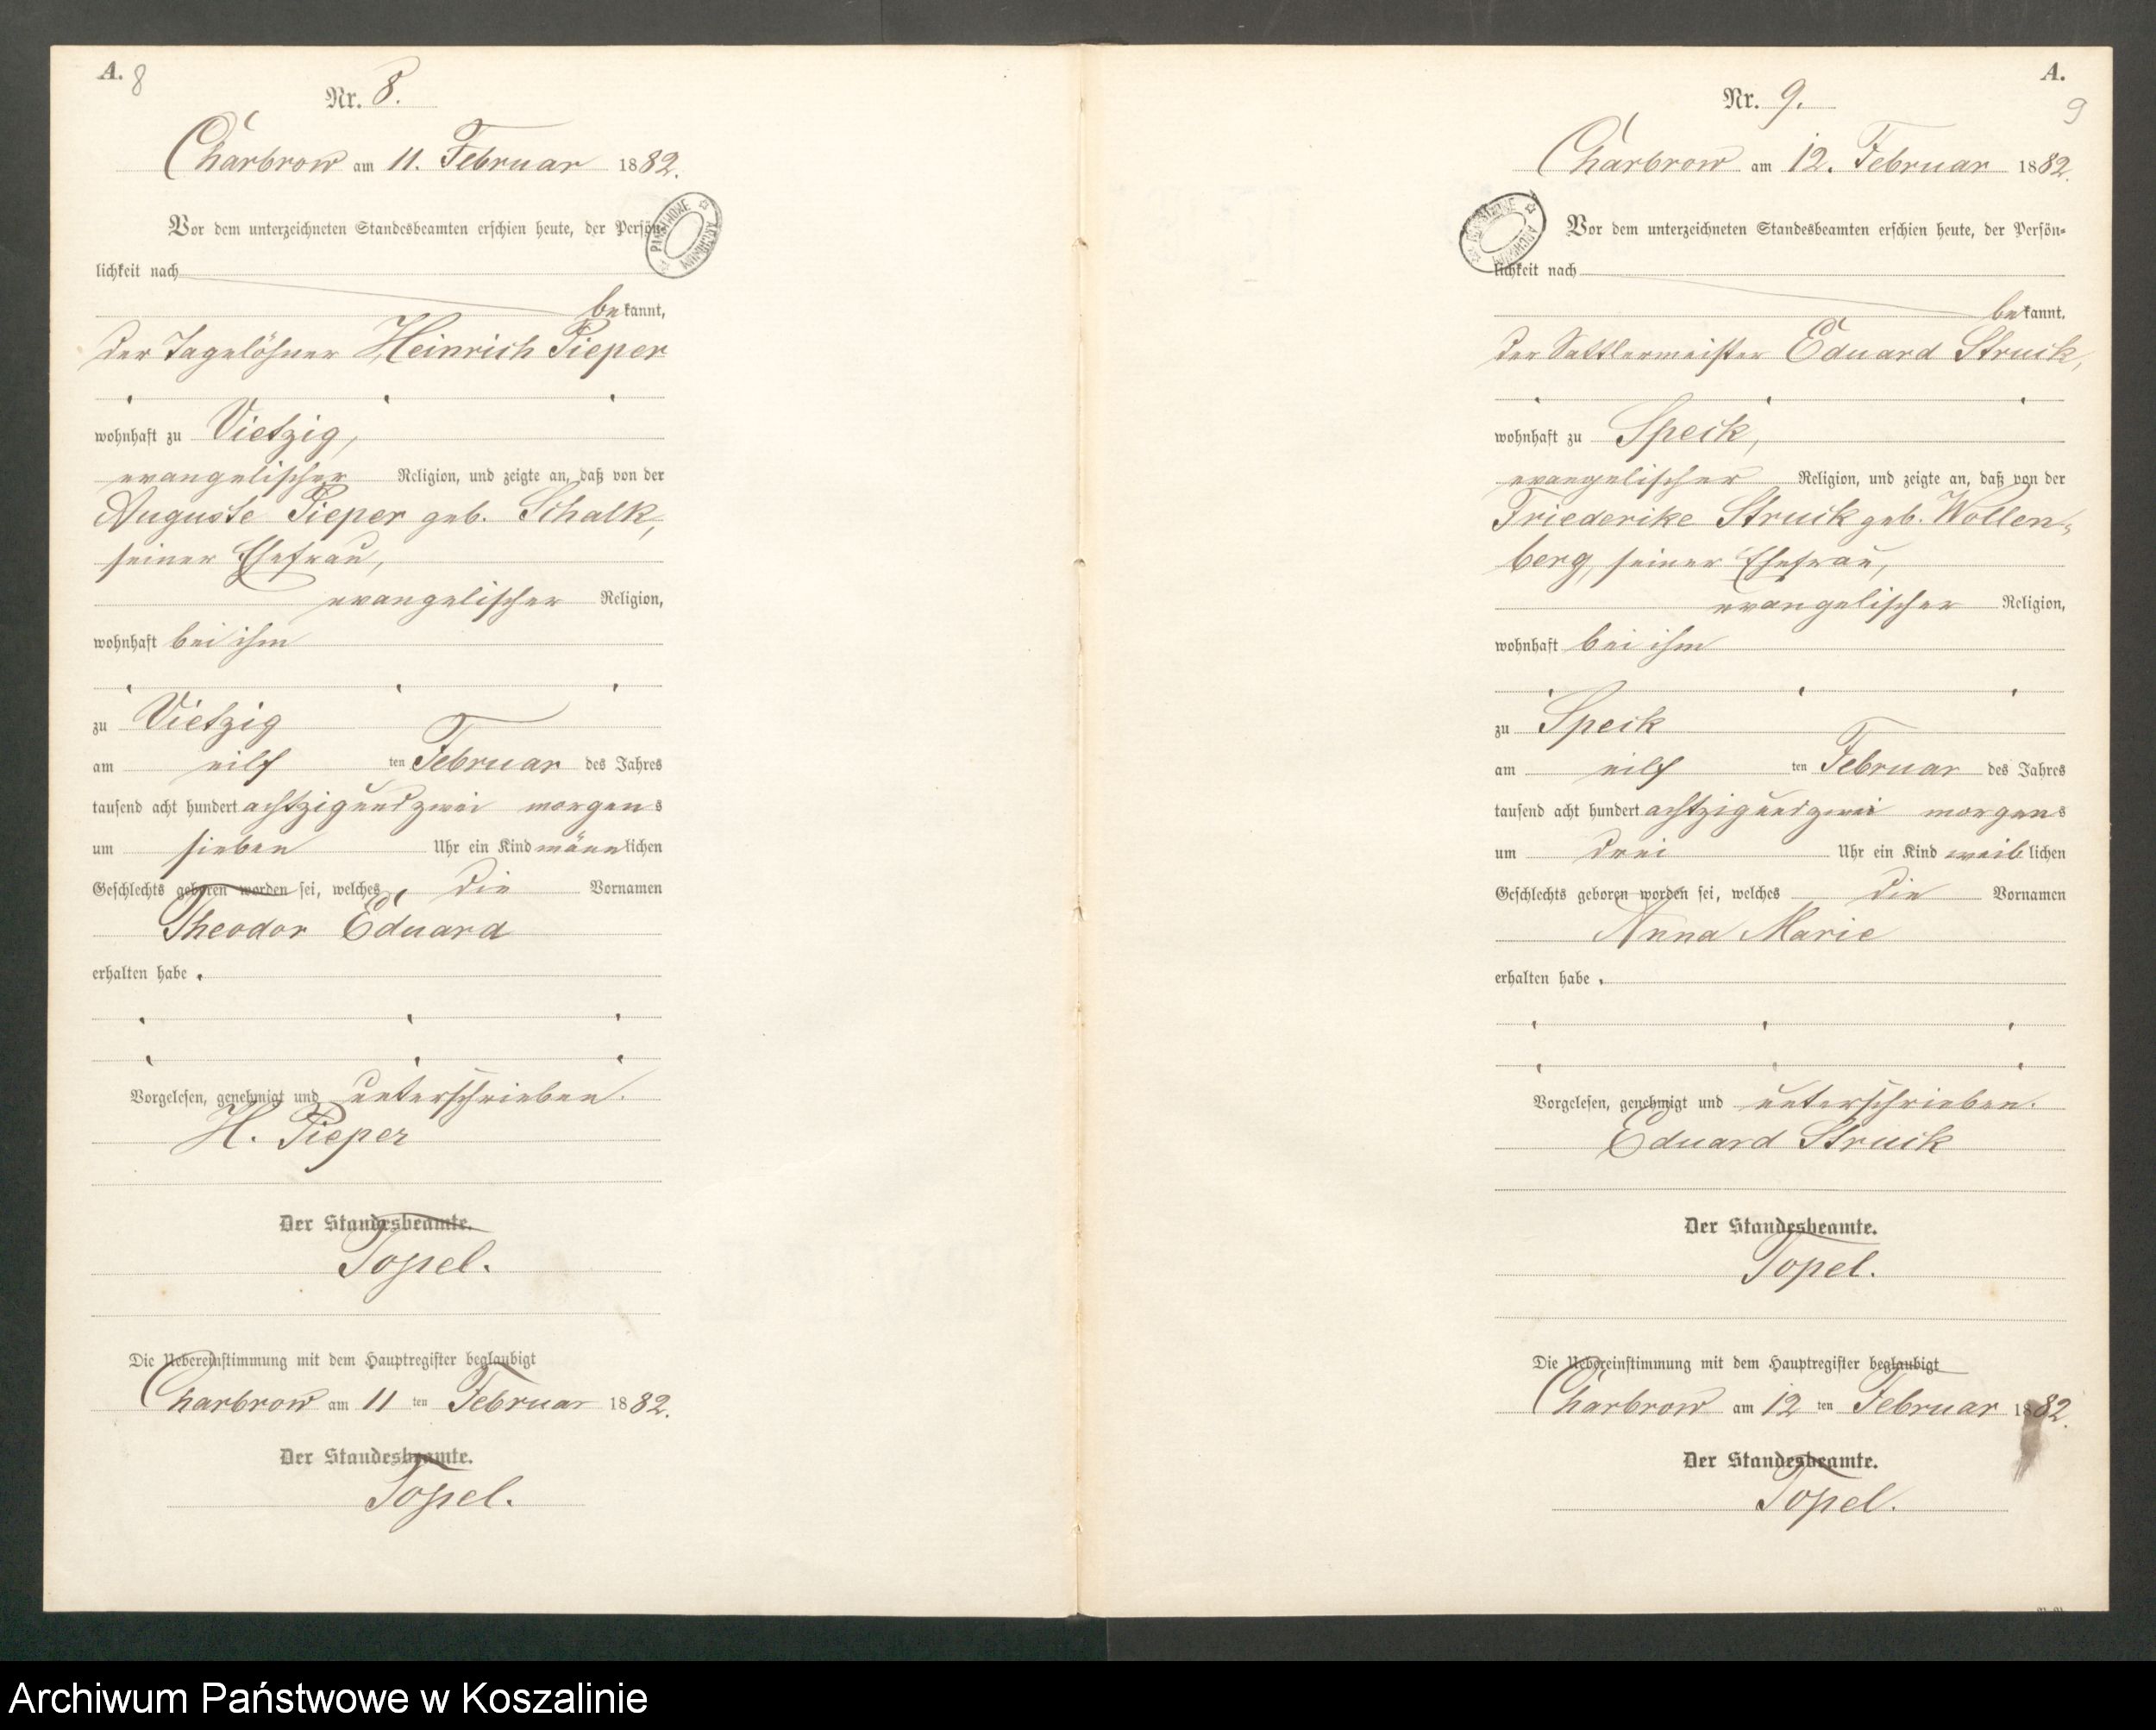 A. 8
Nr. 8.
Charbrow am 11. Februar 1882.
Vor dem unterzeichneten Standesbeamten erschien heute, der Persön-
lichkeit nach
bekannt,
der Tagelöhner Heinrich Pieper
wohnhaft zu Vietzig,
evangelischer Religion, und zeigte an, daß von der
Auguste Pieper geb. Schalk,
seiner Ehefrau,
evangelischer Religion,
wohnhaft bei ihm
zu Vietzig
am eilf ten Februar des Jahres
tausend acht hundert achtzig und zwei morgens
um sieben Uhr ein Kind männlichen
Geschlechts geboren worden sei, welches die Vornamen
Theodor Eduard
erhalten habe.
Vorgelesen, genehmigt und unterschrieben.
H. Pieper
Der Standesbeamte.
Topel.
Die Uebereinstimmung mit dem Hauptregister beglaubigt
Charbrow am 11 ten Februar 1882.
Der Standesbeamte.
Topel.
PAŃSTWOWE ARCHIWUM
A.
9
Nr. 9.
Charbrow am 12. Februar 1882.
Vor dem unterzeichneten Standesbeamten erschien heute, der Persön-
lichkeit nach
bekannt,
der Sattlermeister Eduard Struck,
wohnhaft zu Speck,
evangelischer Religion, und zeigte an, daß von der
Friederike Struck geb. Wollen-
berg, seiner Ehefrau,
evangelischer Religion,
wohnhaft bei ihm
zu Speck
am eilf ten Februar des Jahres
tausend acht hundert achtzig und zwei morgens
um drei Uhr ein Kind weiblichen
Geschlechts geboren worden sei, welches die Vornamen
Anna Marie
erhalten habe.
Vorgelesen, genehmigt und unterschrieben.
Eduard Struck
Der Standesbeamte.
Topel.
Die Uebereinstimmung mit dem Hauptregister beglaubigt
Charbrow am 12 ten Februar 1882.
Der Standesbeamte.
Topel.
ARCHIWUM
Archiwum Państwowe w Koszalinie